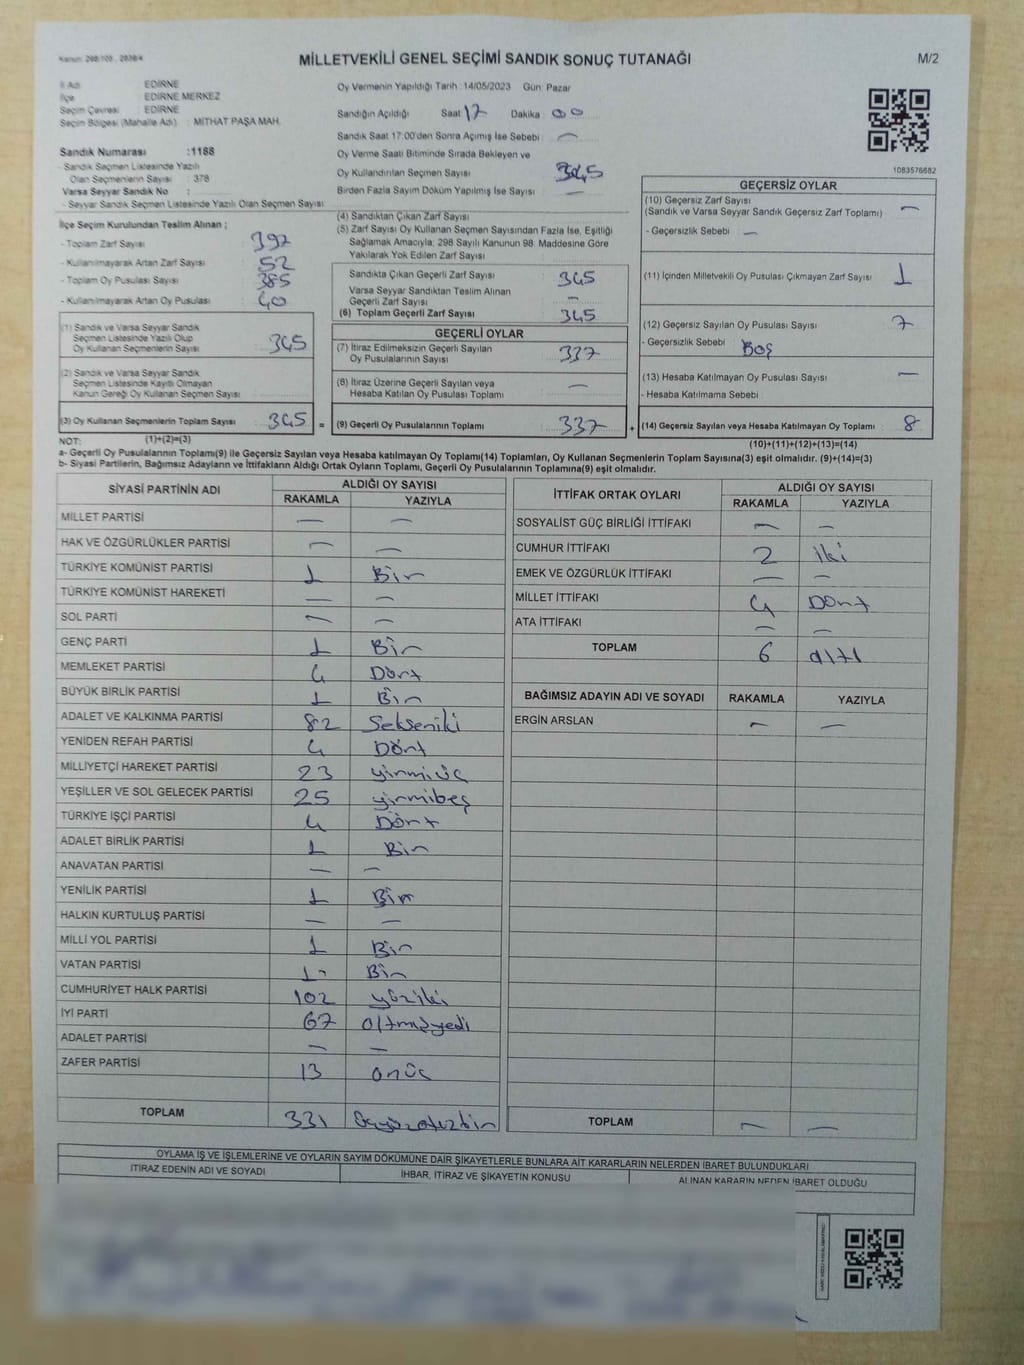 Kanun: 298/105, 2839/4
MİLLETVEKİLİ GENEL SEÇİMİ SANDIK SONUÇ TUTANAĞI
M/2
İl Adı EDİRNE
İlçe EDİRNE MERKEZ
Seçim Çevresi EDİRNE
Seçim Bölgesi (Mahalle Adı) : MİTHAT PAŞA MAH.
Sandık Numarası :1188
- Sandık Seçmen Listesinde Yazılı
Olan Seçmenlerin Sayısı : 378
Varsa Seyyar Sandık No :
- Seyyar Sandık Seçmen Listesinde Yazılı Olan Seçmen Sayısı :
Oy Vermenin Yapıldığı Tarih :14/05/2023 Gün: Pazar
Sandığın Açıldığı Saat 17 Dakika : 00
Sandık Saat 17:00'den Sonra Açımış İse Sebebi : —
Oy Verme Saati Bitiminde Sırada Bekleyen ve
Oy Kullandırılan Seçmen Sayısı : 345
Birden Fazla Sayım Döküm Yapılmış İse Sayısı : —
1083576682
İlçe Seçim Kurulundan Teslim Alınan ;
- Toplam Zarf Sayısı 397
- Kullanılmayarak Artan Zarf Sayısı 52
- Toplam Oy Pusulası Sayısı 385
- Kullanılmayarak Artan Oy Pusulası 40
(1) Sandık ve Varsa Seyyar Sandık
Seçmen Listesinde Yazılı Olup
Oy Kullanan Seçmenlerin Sayısı : 345
(2) Sandık ve Varsa Seyyar Sandık
Seçmen Listesinde Kayıtlı Olmayan
Kanun Gereği Oy Kullanan Seçmen Sayısı :
(3) Oy Kullanan Seçmenlerin Toplam Sayısı : 345 =
(4) Sandıktan Çıkan Zarf Sayısı
(5) Zarf Sayısı Oy Kullanan Seçmen Sayısından Fazla İse, Eşitliği
Sağlamak Amacıyla; 298 Sayılı Kanunun 98. Maddesine Göre
Yakılarak Yok Edilen Zarf Sayısı :
Sandıkta Çıkan Geçerli Zarf Sayısı : 345
Varsa Seyyar Sandıktan Teslim Alınan
Geçerli Zarf Sayısı : —
(6) Toplam Geçerli Zarf Sayısı : 345
GEÇERLİ OYLAR
(7) İtiraz Edilmeksizin Geçerli Sayılan
Oy Pusulalarının Sayısı : 337
(8) İtiraz Üzerine Geçerli Sayılan veya
Hesaba Katılan Oy Pusulası Toplamı : —
(9) Geçerli Oy Pusulalarının Toplamı : 337 +
GEÇERSİZ OYLAR
(10) Geçersiz Zarf Sayısı
(Sandık ve Varsa Seyyar Sandık Geçersiz Zarf Toplamı) : —
- Geçersizlik Sebebi : —
(11) İçinden Milletvekili Oy Pusulası Çıkmayan Zarf Sayısı : 1
(12) Geçersiz Sayılan Oy Pusulası Sayısı : 7
- Geçersizlik Sebebi : Boş
(13) Hesaba Katılmayan Oy Pusulası Sayısı : —
- Hesaba Katılmama Sebebi :
(14) Geçersiz Sayılan veya Hesaba Katılmayan Oy Toplamı : 8
NOT: (1)+(2)=(3)
(10)+(11)+(12)+(13)=(14)
a- Geçerli Oy Pusulasının Toplamı(9) ile Geçersiz Sayılan veya Hesaba katılmayan Oy Toplamı(14) Toplamları, Oy Kullanan Seçmenlerin Toplam Sayısına(3) eşit olmalıdır. (9)+(14)=(3)
b- Siyasi Partilerin, Bağımsız Adayların ve İttifakların Aldığı Ortak Oyların Toplamı, Geçerli Oy Pusulalarının Toplamına(9) eşit olmalıdır.
SİYASİ PARTİNİN ADI ALDIĞI OY SAYISI
RAKAMLA YAZIYLA
MİLLET PARTİSİ — —
HAK VE ÖZGÜRLÜKLER PARTİSİ — —
TÜRKİYE KOMÜNİST PARTİSİ 1 Bir
TÜRKİYE KOMÜNİST HAREKETİ — —
SOL PARTİ — —
GENÇ PARTİ 1 Bir
MEMLEKET PARTİSİ 4 Dört
BÜYÜK BİRLİK PARTİSİ 1 Bir
ADALET VE KALKINMA PARTİSİ 82 Sekseniki
YENİDEN REFAH PARTİSİ 4 Dört
MİLLİYETÇİ HAREKET PARTİSİ 23 yirmiüç
YEŞİLLER VE SOL GELECEK PARTİSİ 25 yirmibeş
TÜRKİYE İŞÇİ PARTİSİ 4 Dört
ADALET BİRLİK PARTİSİ 1 Bir
ANAVATAN PARTİSİ — —
YENİLİK PARTİSİ 1 Bir
HALKIN KURTULUŞ PARTİSİ — —
MİLLİ YOL PARTİSİ 1 Bir
VATAN PARTİSİ 1 Bir
CUMHURİYET HALK PARTİSİ 102 yüziki
İYİ PARTİ 67 altmışyedi
ADALET PARTİSİ — —
ZAFER PARTİSİ 13 onüç
TOPLAM 331 üçyüzotuzbir
İTTİFAK ORTAK OYLARI ALDIĞI OY SAYISI
RAKAMLA YAZIYLA
SOSYALİST GÜÇ BİRLİĞİ İTTİFAKI — —
CUMHUR İTTİFAKI 2 iki
EMEK VE ÖZGÜRLÜK İTTİFAKI — —
MİLLET İTTİFAKI 4 Dört
ATA İTTİFAKI — —
TOPLAM 6 altı
BAĞIMSIZ ADAYIN ADI VE SOYADI RAKAMLA YAZIYLA
ERGİN ARSLAN — —
TOPLAM — —
OYLAMA İŞ VE İŞLEMLERİNE VE OYLARIN SAYIM DÖKÜMÜNE DAİR ŞİKAYETLERLE BUNLARA AİT KARARLARIN NELERDEN İBARET BULUNDUKLARI
İTİRAZ EDENİN ADI VE SOYADI İHBAR, İTİRAZ VE ŞİKAYETİN KONUSU ALINAN KARARIN NEDEN İBARET OLDUĞU